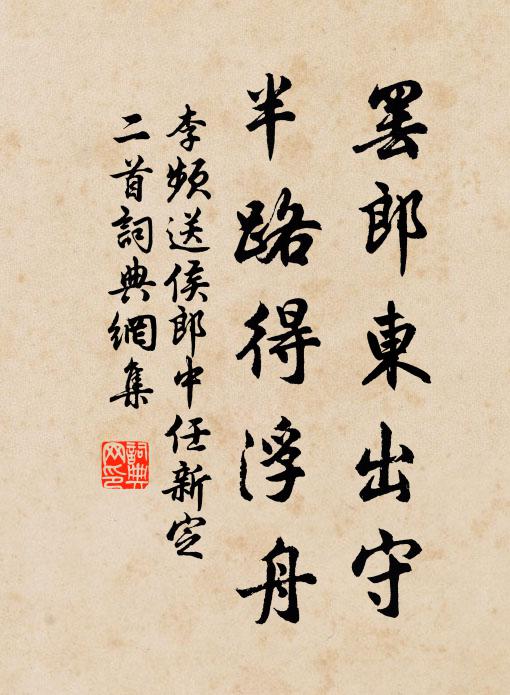 罷郎東出守
半路得浮舟
李頻送侯郎中任新定
二首詞典網集
詞典网印